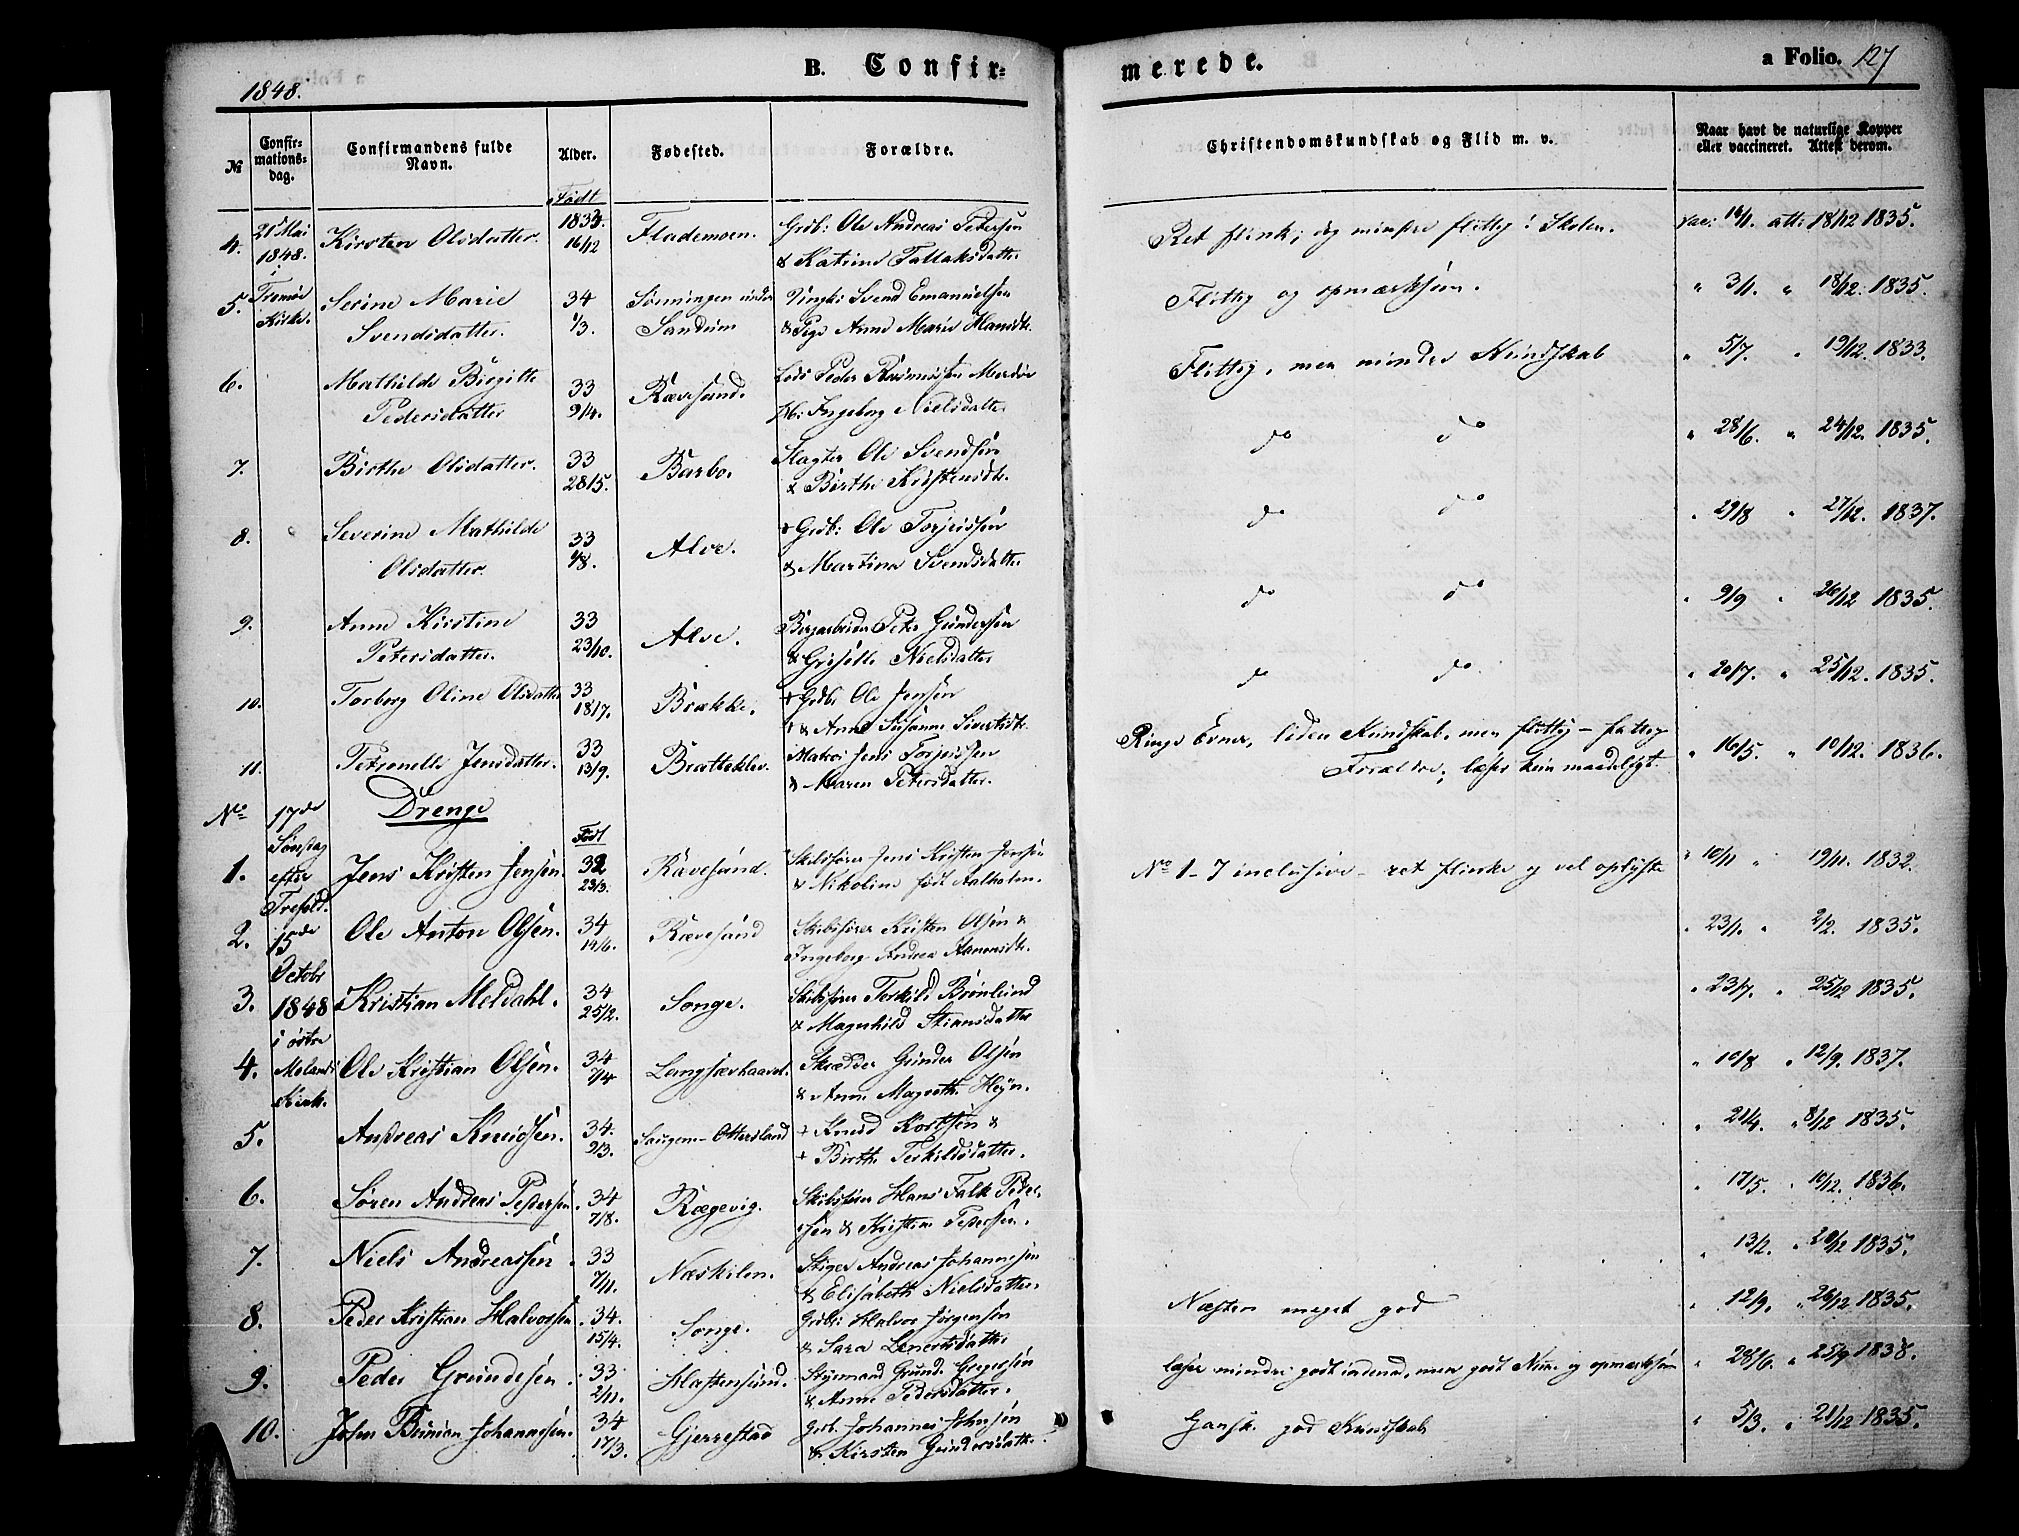 1848.
B. Confir-
merede.
a Folio. 127
No
Confir-
mations-
dag.
Confirmandens fulde
Navn.
Alder.
Fødested.
Forældre.
Christendomskundskab og Flid m. v.
Naar havt de naturlige Kopper
eller vaccineret. Attest derom.
Født
4. 21 Mai 1848. i Tromø Kirke. Kirsten Olsdatter. 1833 16/12 Flademoen. Grdb: Ole Andreas Pedersen
& Katrine Tallaksdatter
Ret flink, og mindre flittig i Skolen. vac: 16/1. att: 18/12 1835.
5. Serine Marie
Svendsdatter. 34 1/3. Sønningen under
Sandum Ungkl Svend Emanuelsen
& Pige Anne Marie Hansdtr.
Flittig og opmærksom. " 3/1. " 18/12. 1835.
6. Mathilde Birgitte
Pedersdatter 33 9/4. Rævesand. Lods Peder Rasmussen Merdøe
Ingeborg Nielsdatter
Flittig, men mindre Kundskab " 5/7. " 19/12. 1833.
7. Birthe Olsdatter. 33 28/5. Barbo. Slagter Ole Svendsen
& Birthe Kristensdtr.
do do " 28/6. " 24/12. 1835.
8. Severine Mathilde
Olsdatter. 33 1/8. Alve. + Grdb: Ole Torjussen
& Martine Svendsdatter
do do " 29/8 " 27/12. 1837.
9. Anne Kirstine
Petersdatter. 33 23/10. Alve. Bergarbeider Peter Gundersen
& Griselle Nielsdatter
do do " 9/9 " 26/12 1835.
10. Torborg Oline Olsdatter 33 18/7. Brække. + Grdb. Ole Jensen
& Anne Susanne Sivertsdtr.
do do " 20/7. " 25/12. 1835.
11. Petronelle Jensdatter. 33 13/9. Bratteklev. Matros Jens Torjussen
& Maren Petersdatter.
Ringe Evner, liden Kundskab, men flittig - fattige
Forældre; læser kun maadeligt. " 16/5. " 10/12. 1836.
No 17de Drenge
Søndag Født
efter
Trefold.
15de
Octobr
1848
i østre
Molands
Kirk.
1. Jens Kristen Jensen. 32 23/3. Rævesand. Skibsfører Jens Kristen Jensen
& Nikoline født Aalholm.
No 1-7 inclusive - ret flinke og vel oplyste " 10/11 " 19/11. 1832.
2. Ole Anton Olsen. 34 14/6. Rævesand Skibsfører Kristen Olsen &
Ingeborg Andrea Aanonsdtr.
" 23/1. " 2/2. 1835.
3. Kristian Meldahl. 34 25/2. Songe. Skibsfører Terkild Brønlund
& Magnhild Stiansdatter
" 23/7. " 25/12 1835.
4. Ole Kristian Olsen. 34 7/4 Langsævhaavet. Skrædder Gunder Olsen
& Anne Magrethe Heyn.
" 10/8 " 12/9. 1837.
5. Andreas Knudsen. 34. 9/3. Ottersland + Knud Kortsen &
+ Birthe Terkildsdatter.
" 21/4. " 8/12 1835.
6. Søren Andreas Pedersen. 34 7/8. Rægevig. Skibsfører Hans Falk Peder-
sen & Kristine Pedersen.
" 17/5. " 10/12. 1836.
7. Niels Andreassen. 33 7/11. Næskilen. Stiger Andreas Johannesen
& Elisabeth Nielsdatter.
" 13/2. " 20/12 1835.
8. Peder Kristian Halvorsen. 34. 15/4. Songe. Grdb: Halvor Jørgensen
& Sara Lenertsdatter
Næsten meget god " 12/9. " 26/12 1835.
9. Peder Grundesen. 33 2/11. Hastensund. Styrmand Grunde Gregersen
& Anne Pedersdatter.
læser mindre godt indenad, men godt Nem og opmærksom " 28/6. " 25/9 1838.
10. John Johannessen. 34 17/3. Gjerrestad Grdb. Johannes Johnsen
& Kirsten Gundersdatter.
Ganske god Kundskab " 5/3. " 21/12 1835.